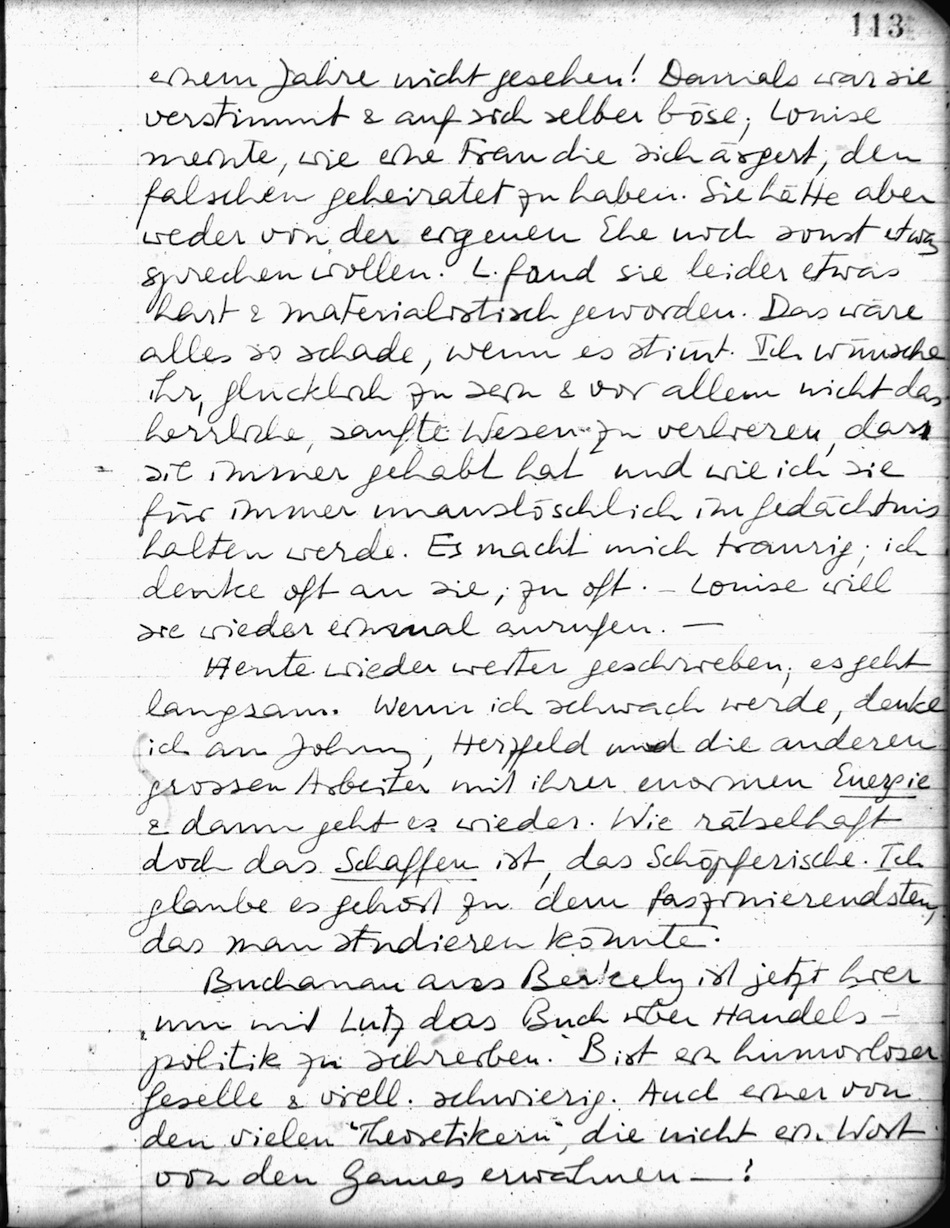 113
einem Jahre nicht gesehen! Damals war sie
verstimmt & auf sich selber böse; Louise
meinte, wie eine Frau die sich ärgert, den
falschen geheiratet zu haben. Sie hätte aber
weder von der eigenen Ehe noch sonst etwas
sprechen wollen. L. fand sie leider etwas
hart & materialistisch geworden. Das wäre
alles so schade, wenn es stimt. Ich wünsche
ihr, glücklich zu sein & vor allem nicht das
herrliche, sanfte Wesen zu verlieren, dass
sie immer gehabt hat und wie ich sie
für immer unauslöschlich im Gedächtnis
halten werde. Es macht mich traurig; ich
denke oft an sie, zu oft. – Louise will
sie wieder einmal anrufen. —
Heute wieder weiter geschrieben; es geht
langsam. Wenn ich schwach werde, denke
ich an Johnny, Herzfeld und die anderen
grossen Arbeiter mit ihrer enormen Energie
& dann geht es wieder. Wie rätselhaft
doch das Schaffen ist, das Schöpferische. Ich
glaube es gehört zu dem faszinierendsten,
das man studieren könnte.
Buchanan aus Berkely ist jetzt hier
um mit Lutz das Buch über Handels-
politik zu schreiben. B ist ein humorloser
Geselle & viell. schwierig. Auch einer von
den vielen "Theoretikern", die nicht ein Wort
von den Games erwähnen —!